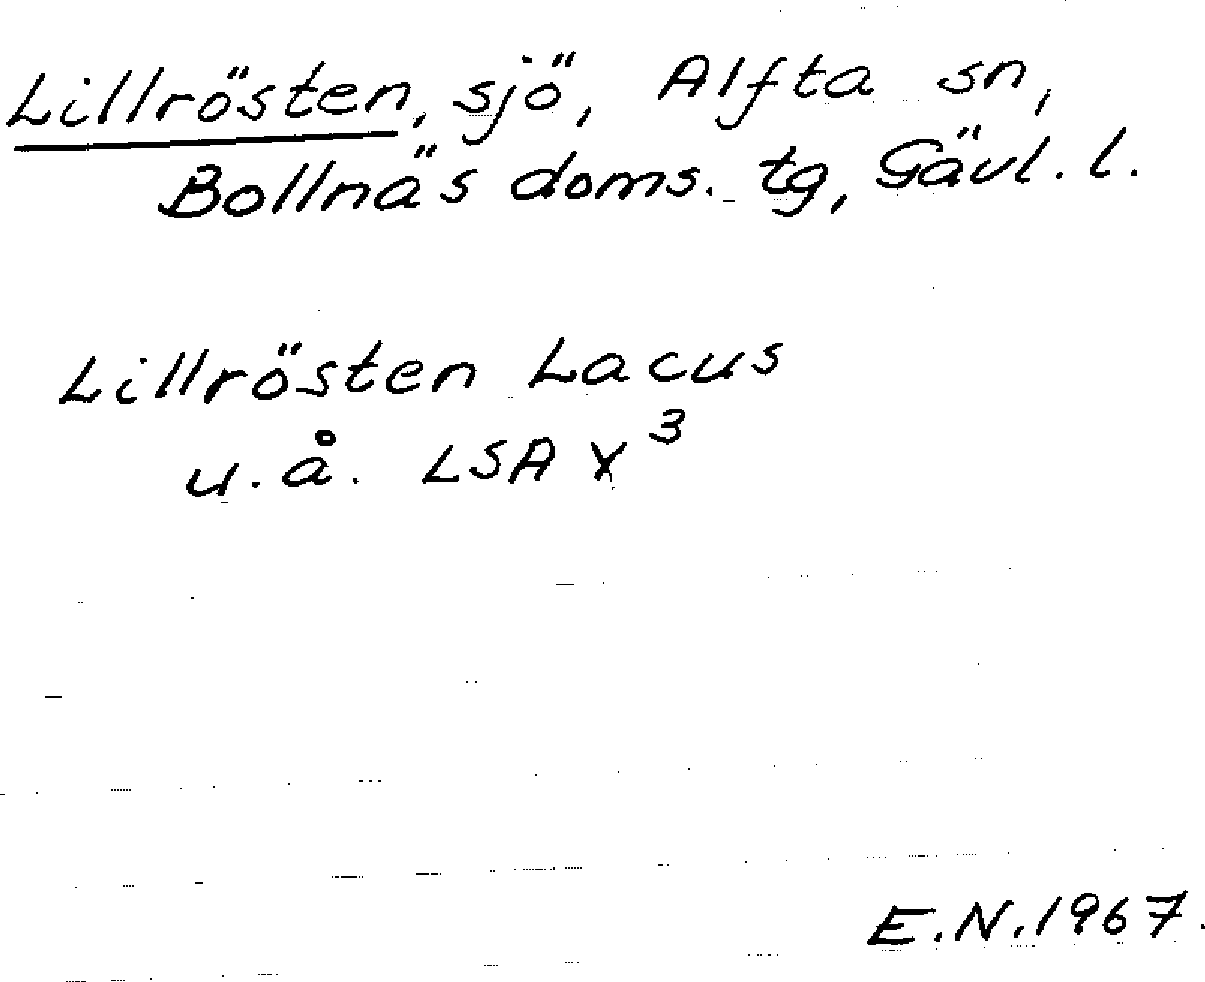 Lillrösten, sjö, Alfta sn,
Bollnäs doms. tg, Gävl. l.
Lillrösten Lacus
u. å. LSA X³
E.N. 1967.